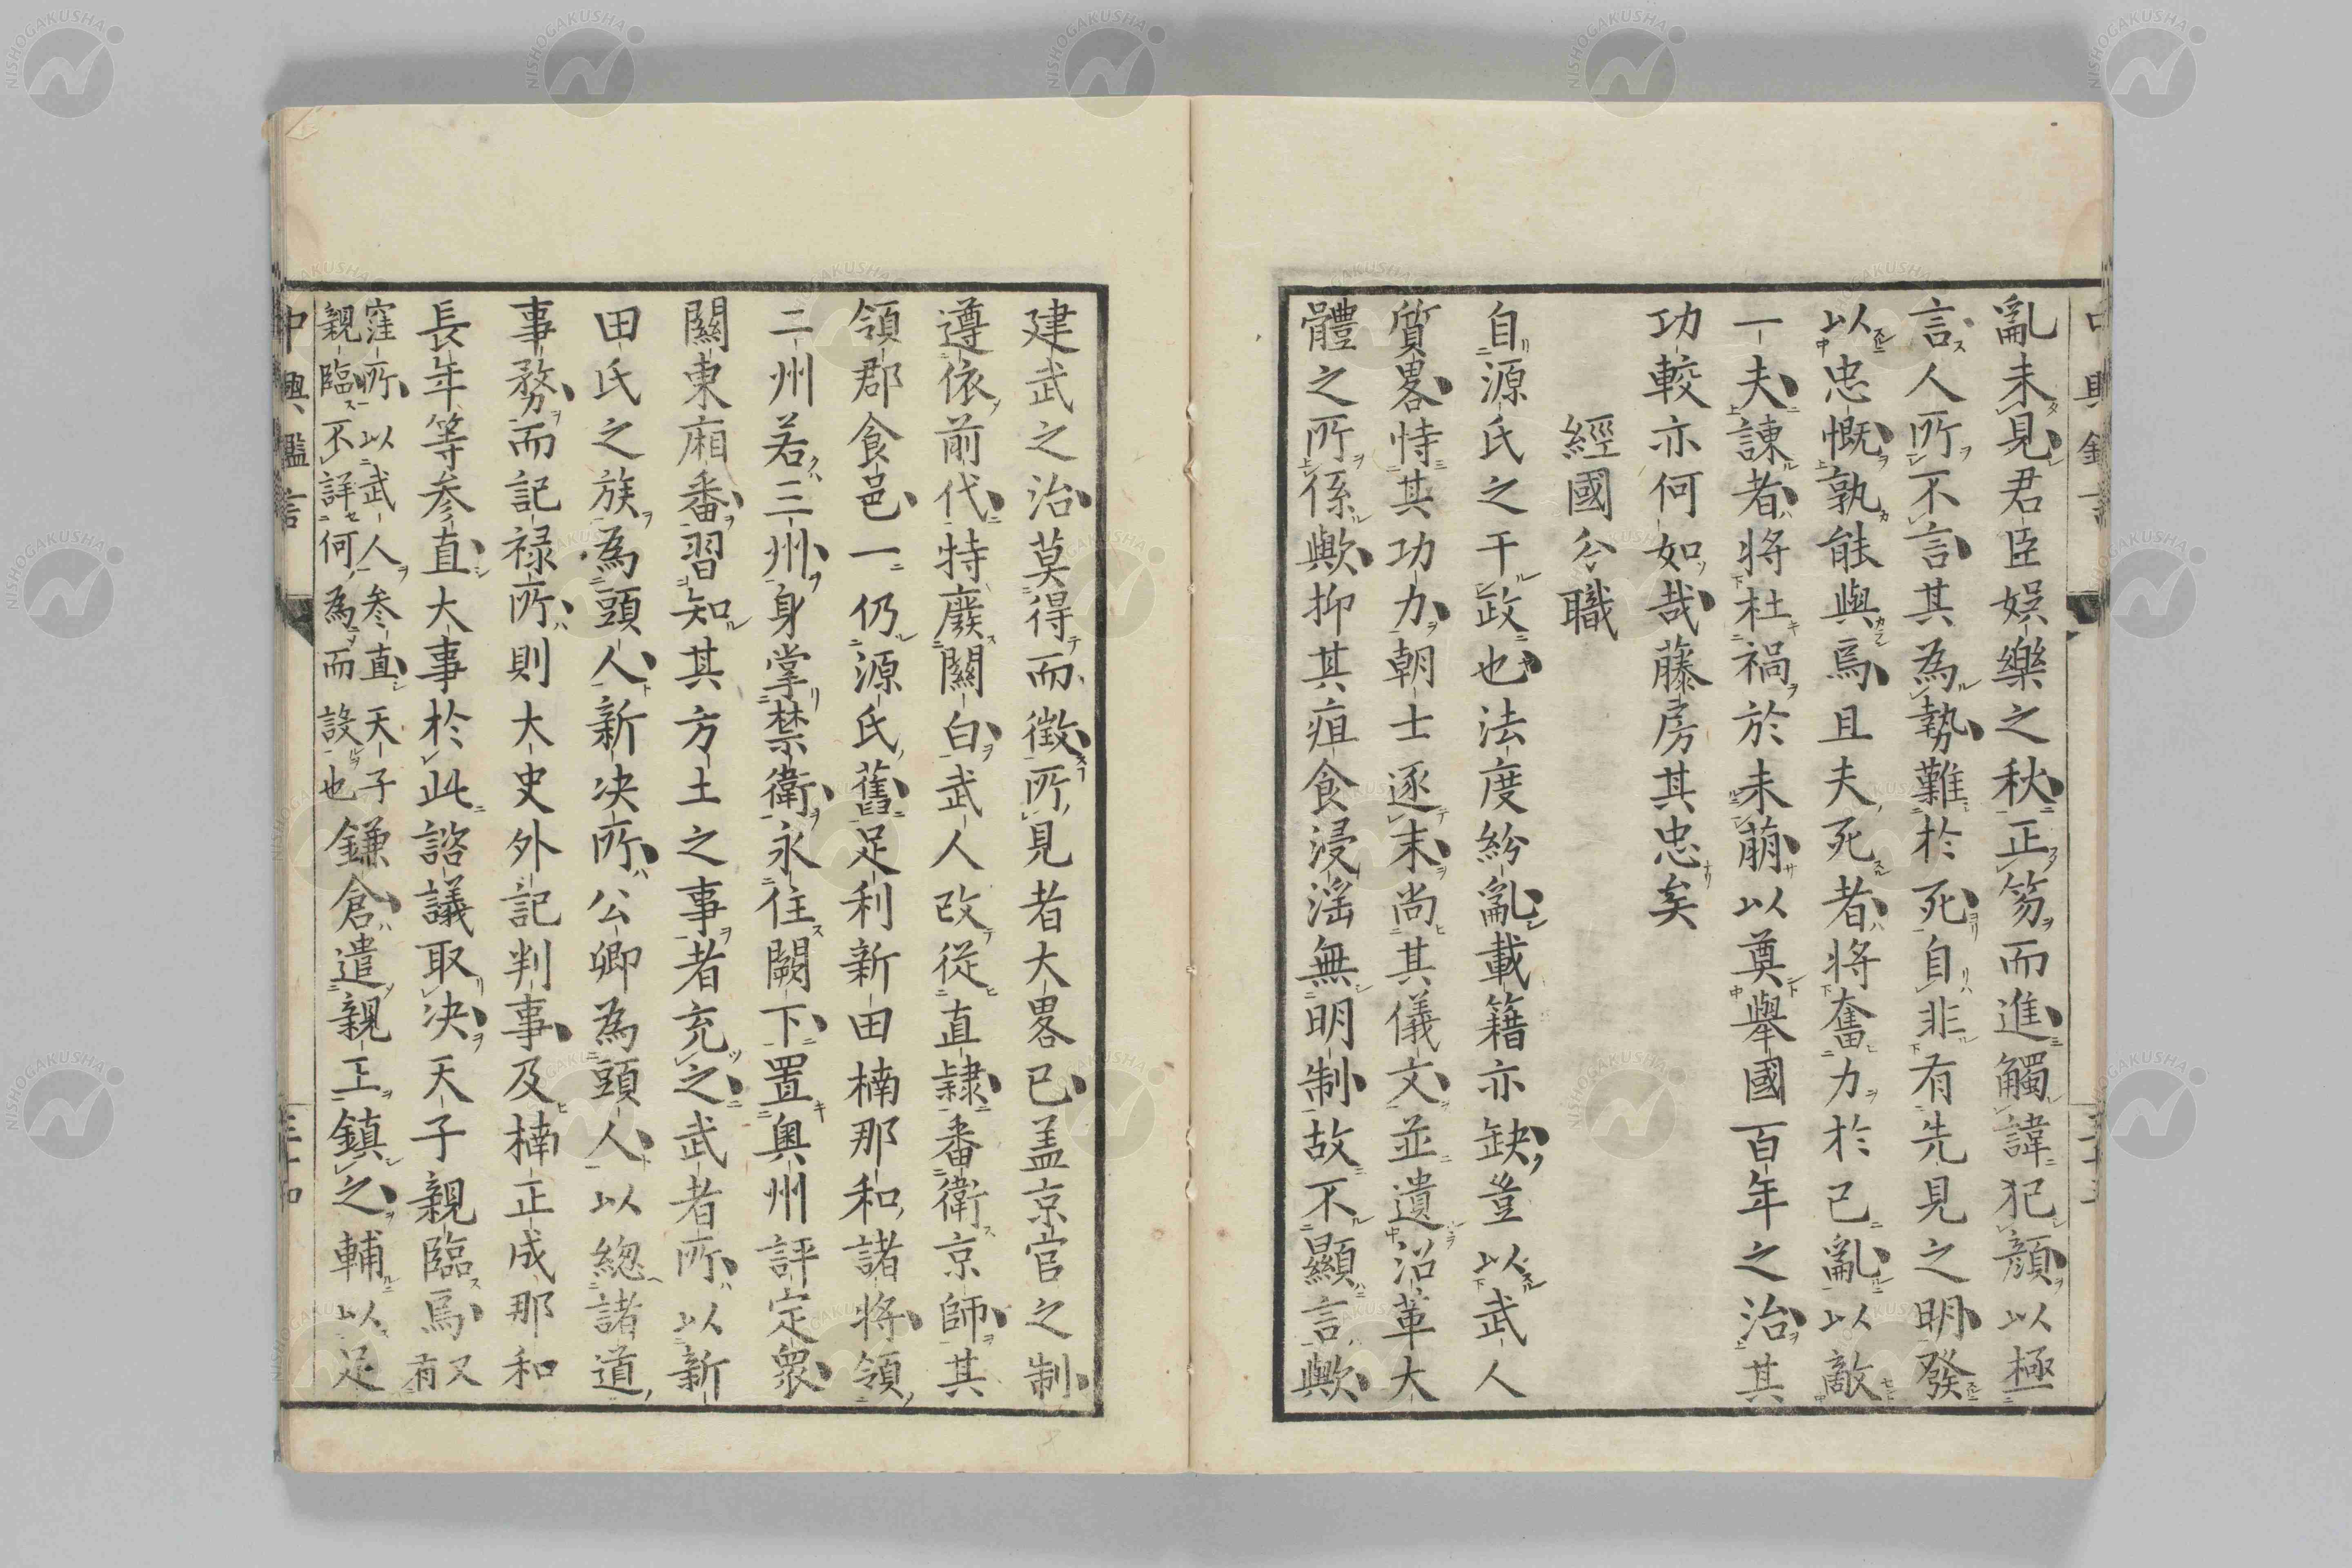 亂未見君臣娯樂之秋正笏而進觸諱犯顏以極
言人所不言其為勢難於死自非有先見之明發
以忠慨孰能與焉且夫死者將奮力於已亂以敵
一夫諫者將杜禍於未萠以奠舉國百年之治其
功較亦何如哉藤房其忠矣
經國分職
自源氏之干政也法度紛亂載籍亦缺豈以武人
質畧恃其功力朝士逐末尚其儀文並遺沿革大
體之所係歟抑其疽食浸滛無明制故不顯言歟
建武之治莫得而徵所見者大畧已盖京官之制
遵依前代特廢關白武人改從直隷番衛京師其
領郡食邑一仍源氏舊足利新田楠那和諸將領
二州若三州身掌禁衛永住闕下置奥州評定衆
關東廂番習知其方土之事者充之武者所以新
田氏之族為頭人新决所公卿為頭人以緫諸道
事務而記禄所則大史外記判事及楠正成那和
長年等参直大事於此諮議取决天子親臨焉又有
窪所以武人参直天子親臨不詳何為而設也鎌倉遣親王鎮之輔以足
中興鑑言